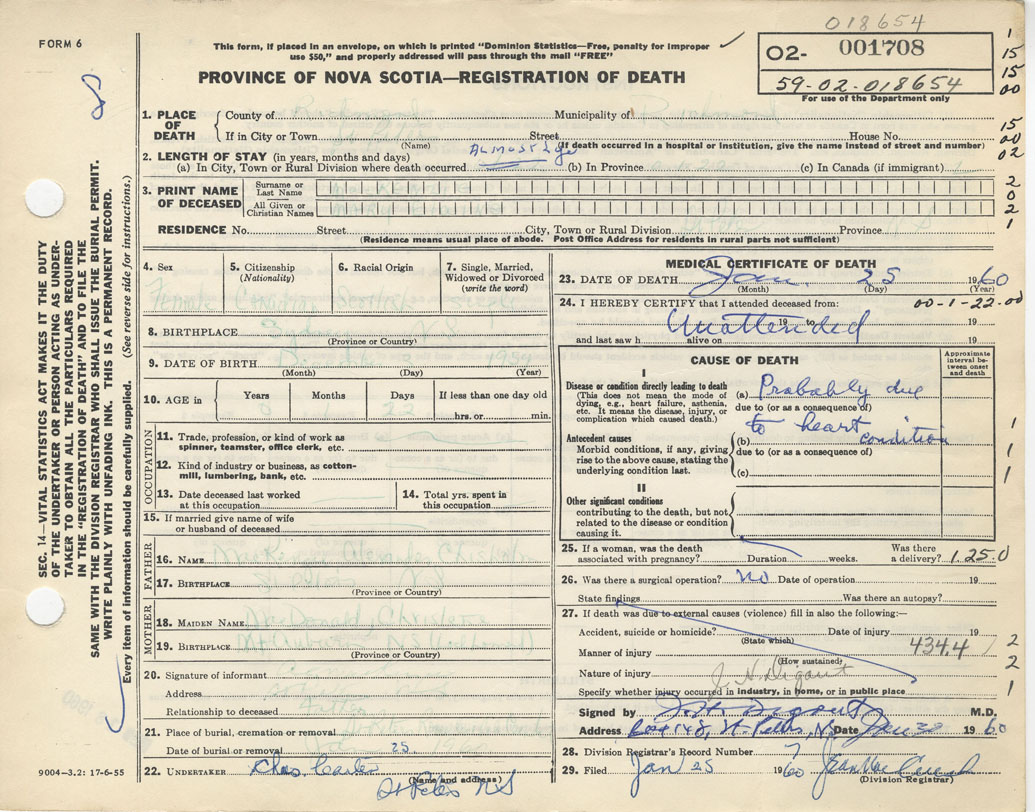 018654
FORM 6
This form, if placed in an envelope, on which is printed "Dominion Statistics—Free, penalty for improper
use $50," and properly addressed will pass through the mail "FREE"
O2- 001708
59-02-018654
For use of the Department only
PROVINCE OF NOVA SCOTIA—REGISTRATION OF DEATH
1
15
15
00
15
00
02
2
0
2
1
SEC. 14—VITAL STATISTICS ACT MAKES IT THE DUTY
OF THE UNDERTAKER OR PERSON ACTING AS UNDER-
TAKER TO OBTAIN ALL THE PARTICULARS REQUIRED
IN THE "REGISTRATION OF DEATH" AND TO FILE THE
SAME WITH THE DIVISION REGISTRAR WHO SHALL ISSUE THE BURIAL PERMIT.
WRITE PLAINLY WITH UNFADING INK. THIS IS A PERMANENT RECORD.
Every item of information should be carefully supplied. (See reverse side for instructions.)
1. PLACE OF DEATH
County of Richmond Municipality of Richmond
If in City or Town St Peters Street House No.
(Name) (If death occurred in a hospital or institution, give the name instead of street and number)
2. LENGTH OF STAY (in years, months and days)
(a) In City, Town or Rural Division where death occurred ALMOST Life (b) In Province (c) In Canada (if immigrant)
3. PRINT NAME OF DECEASED
Surname or Last Name
All Given or Christian Names
RESIDENCE No. Street City, Town or Rural Division St Peters Province N S
(Residence means usual place of abode. Post Office Address for residents in rural parts not sufficient)
4. Sex
5. Citizenship (Nationality)
6. Racial Origin
7. Single, Married, Widowed or Divorced (write the word)
Female Canadian Scotch Single
8. BIRTHPLACE Sydney N S
(Province or Country)
9. DATE OF BIRTH 1959
(Month) (Day) (Year)
10. AGE in
Years Months Days If less than one day old
0 1 22 hrs. or min.
OCCUPATION
11. Trade, profession, or kind of work as spinner, teamster, office clerk, etc.
12. Kind of industry or business, as cotton-mill, lumbering, bank, etc.
13. Date deceased last worked at this occupation
14. Total yrs. spent in this occupation
15. If married give name of wife or husband of deceased
FATHER
16. NAME Alexander Chisholm
17. BIRTHPLACE St Peters N S
(Province or Country)
MOTHER
18. MAIDEN NAME McDonald Christena
19. BIRTHPLACE N S
(Province or Country)
20. Signature of informant
Address St Peters N S
Relationship to deceased Father
21. Place of burial, cremation or removal
Date of burial or removal 25 1960
22. UNDERTAKER Chas
(Name and address)
St Peters N S
9004—3.2: 17-6-55
MEDICAL CERTIFICATE OF DEATH
23. DATE OF DEATH Jan. 25 1960
(Month) (Day) (Year)
24. I HEREBY CERTIFY that I attended deceased from: 00-1-22.00
19 to 19
Unattended
and last saw h alive on 19
CAUSE OF DEATH
Approximate interval between onset and death
I
Disease or condition directly leading to death
(This does not mean the mode of dying, e.g., heart failure, asthenia, etc. It means the disease, injury, or complication which caused death.)
(a) Probably due
due to (or as a consequence of)
to heart condition
Antecedent causes
Morbid conditions, if any, giving rise to the above cause, stating the underlying condition last.
(b)
due to (or as a consequence of)
(c)
1
1
1
II
Other significant conditions
contributing to the death, but not related to the disease or condition causing it.
25. If a woman, was the death associated with pregnancy? Duration weeks. Was there a delivery? 1.25.0
26. Was there a surgical operation? No Date of operation 19
State findings Was there an autopsy?
27. If death was due to external causes (violence) fill in also the following:—
Accident, suicide or homicide? Date of injury 19
(State which)
Manner of injury 434.4 / 2
(How sustained)
2
Nature of injury
Specify whether injury occurred in industry, in home, or in public place 1
Signed by M.D.
Address Box 148, St Peters, NS Date Jan 1960
28. Division Registrar's Record Number 7
29. Filed Jan 25 1960
(Division Registrar)